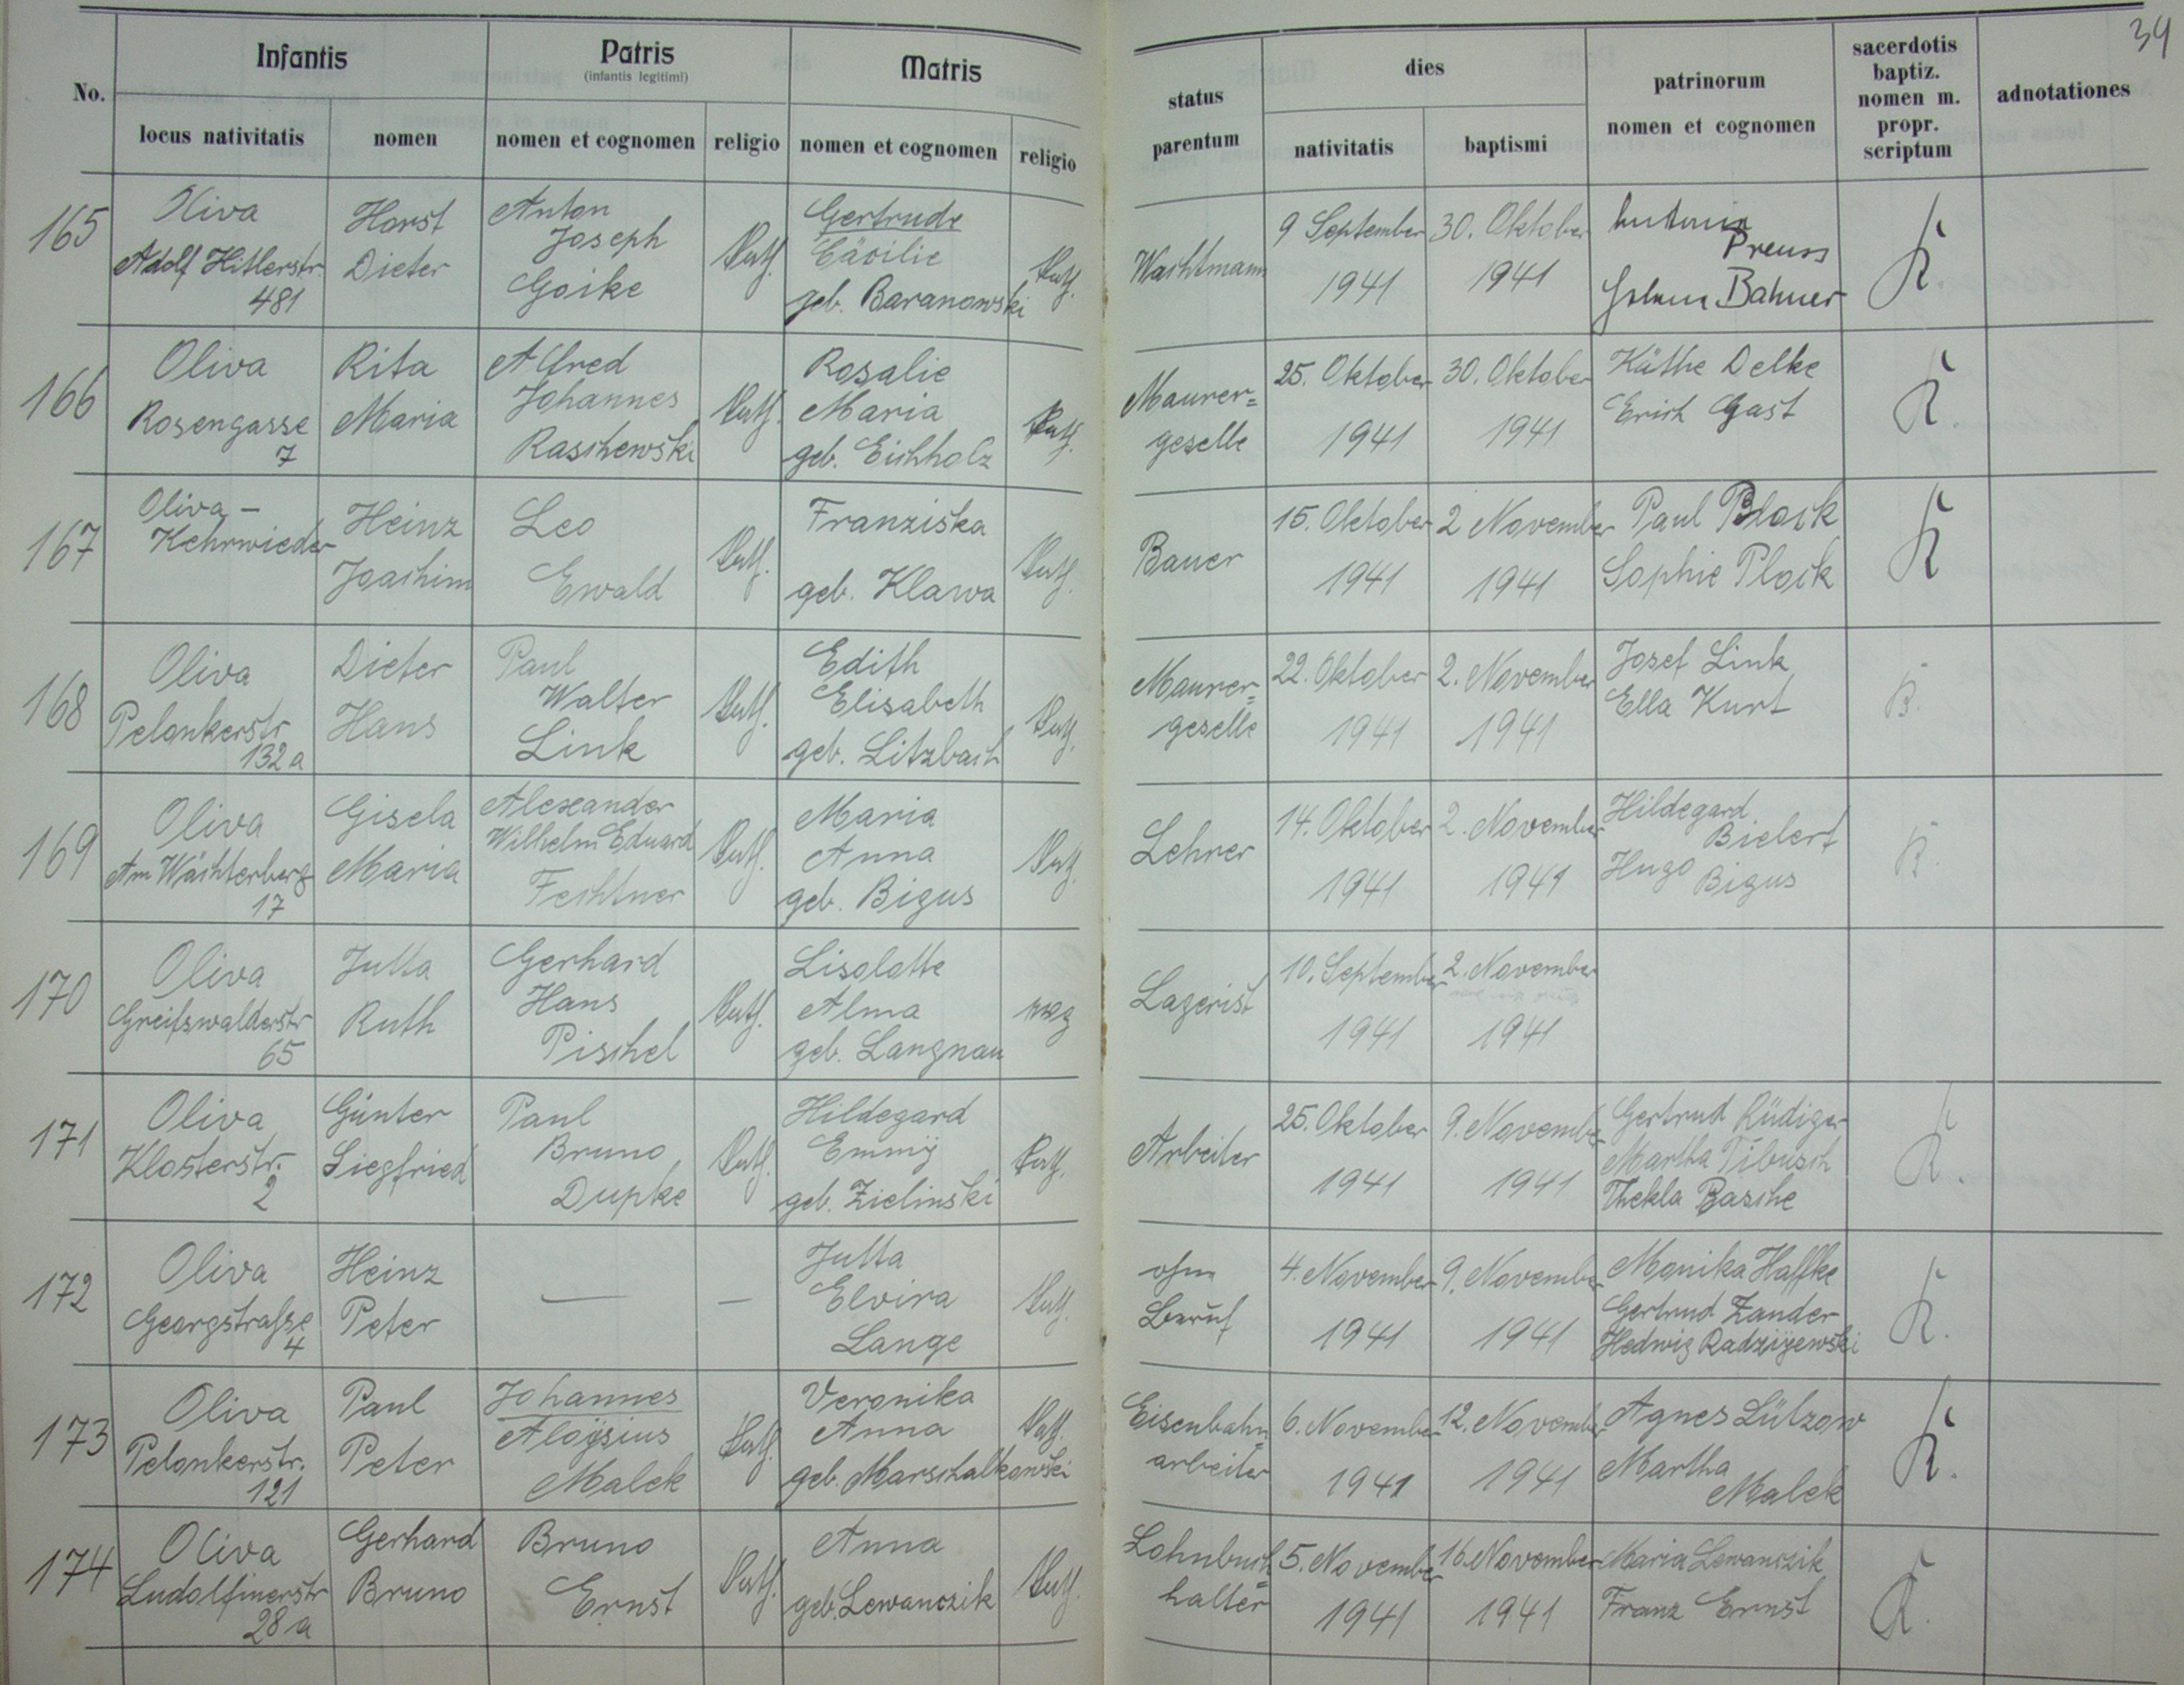 34
No.
Infantis
locus nativitatis
nomen
Patris
(infantis legitimi)
nomen et cognomen
religio
Matris
nomen et cognomen
religio
status
parentum
dies
nativitatis
baptismi
patrinorum
nomen et cognomen
sacerdotis
baptiz.
nomen m.
propr.
scriptum
adnotationes
165
Oliva
Adolf Hitlerstr.
481
Horst
Dieter
Anton
Joseph
Goike
kath.
Gertrude
Cäcilie
geb. Baranowski
kath.
Wachtmann
9 September
1941
30. Oktober
1941
Preuss
Bahner
K.
166
Oliva
Rosengasse
7
Rita
Maria
Alfred
Johannes
Raschewski
kath.
Rosalie
Maria
geb. Eichholz
kath.
Maurer=
geselle
25. Oktober
1941
30. Oktober
1941
Käthe Delke
Erich Gast
K.
167
Oliva –
Kehrwieder
Heinz
Joachim
Leo
Ewald
kath.
Franziska
geb. Klawa
kath.
Bauer
15. Oktober
1941
2 November
1941
Paul Block
Sophie Plock
K
168
Oliva
Pelonkerstr
132a
Dieter
Hans
Paul
Walter
Link
kath.
Edith
Elisabeth
geb. Litzbach
kath.
Maurer=
geselle
22. Oktober
1941
2. November
1941
Josef Link
Ella Kurt
K.
169
Oliva
Am Wächterberg
17
Gisela
Maria
Alexander
Wilhelm Eduard
Fechtner
kath.
Maria
Anna
geb. Bigus
kath.
Lehrer
14. Oktober
1941
2. November
1941
Hildegard
Bielert
Hugo
Bigus
K.
170
Oliva
Greifswalderstr
65
Jutta
Ruth
Gerhard
Hans
Pischel
kath.
Lisolotte
Alma
geb. Langnau
evg
Lagerist
10. September
1941
2. November
1941
171
Oliva
Klosterstr.
2
Günter
Siegfried
Paul
Bruno
Dupke
kath.
Hildegard
Emmÿ
geb. Zielinski
kath.
Arbeiter
25. Oktober
1941
9. November
1941
Gertrud Rüdiger
Martha Tibusch
Thekla Basche
K.
172
Oliva
Georgstraße
4
Heinz
Peter
—
—
Jutta
Elvira
Lange
kath.
ohne
Beruf
4. November
1941
9. November
1941
Monika Haffke
Gertrud Zander
Hedwig Radzijewski
K.
173
Oliva
Pelonkerstr.
121
Paul
Peter
Johannes
Aloÿsius
Malek
kath.
Veronika
Anna
geb. Marschalkowski
kath.
Eisenbahn=
arbeiter
6. November
1941
12. November
1941
Agnes Lützow
Martha
Malek
K.
174
Oliva
Ludolfinerstr
28a
Gerhard
Bruno
Bruno
Ernst
kath.
Anna
geb. Lewanczik
kath.
Lohnbuch=
halter
5. November
1941
16. November
1941
Maria Lewanczik
Franz Ernst
K.